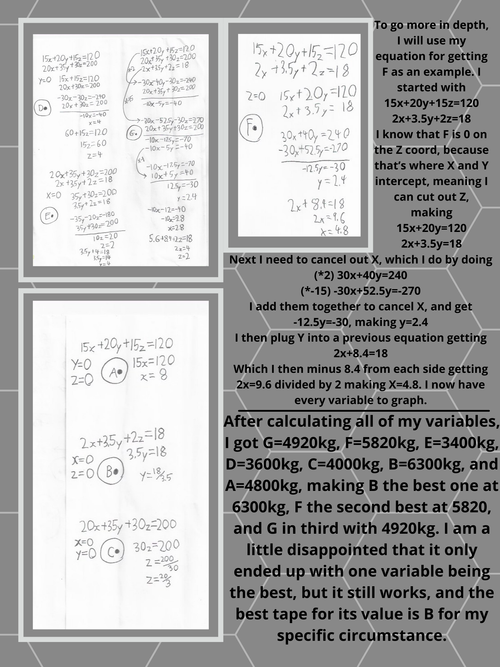 15x+20y+15z=120
20x+35y+30z=200
y=0
15x+15z=120
20x+30z=200
D
-30x-30z=-240
20x+30z=200
-10x=-40
x=4
60+15z=120
15z=60
z=4
20x+35y+30z=200
2x+3.5y+2z=18
x=0
35y+30z=200
3.5y+2z=18
E
-35y-20z=-180
35y+30z=200
10z=20
z=2
3.5y+4=18
3.5y=14
15x+20y+15z=120
20x+35y+30z=200
2x+3.5y+2z=18
-30x-40y-30z=-240
20x+35y+30z=200
-10x-5y=-40
-30x-52.5y-30z=-270
G
20x+35y+30z=200
-10x-17.5y=-70
-10x-5y=-40
-10x-12.5y=-70
10x+5y=40
12.5y=30
y=2.4
-10x-12=-40
-10x=-28
x=2.8
5.6+8.4+2z=18
2z=4
z=2
15x+20y+15z=120
2x+3.5y+2z=18
z=0
15x+20y=120
2x+3.5y=18
F
30x+40y=240
-30x+52.5y=-270
-12.5y=-30
y=2.4
2x+8.4=18
2x=9.6
x=4.8
To go more in depth,
I will use my
equation for getting
F as an example. I
started with
15x+20y+15z=120
2x+3.5y+2z=18
I know that F is 0 on
the Z coord, because
that's where X and Y
intercept, meaning I
can cut out Z,
making
15x+20y=120
2x+3.5y=18
Next I need to cancel out X, which I do by doing
(*2) 30x+40y=240
(*-15) -30x+52.5y=-270
I add them together to cancel X, and get
-12.5y=-30, making y=2.4
I then plug Y into a previous equation getting
2x+8.4=18
Which I then minus 8.4 from each side getting
2x=9.6 divided by 2 making X=4.8. I now have
every variable to graph.
15x+20y+15z=120
y=0
z=0
A
15x=120
x=8
2x+3.5y+2z=18
x=0
z=0
B
3.5y=18
y=18/3.5
20x+35y+30z=200
x=0
y=0
C
30z=200
z=200/30
z=20/3
After calculating all of my variables,
I got G=4920kg, F=5820kg, E=3400kg,
D=3600kg, C=4000kg, B=6300kg, and
A=4800kg, making B the best one at
6300kg, F the second best at 5820,
and G in third with 4920kg. I am a
little disappointed that it only
ended up with one variable being
the best, but it still works, and the
best tape for its value is B for my
specific circumstance.